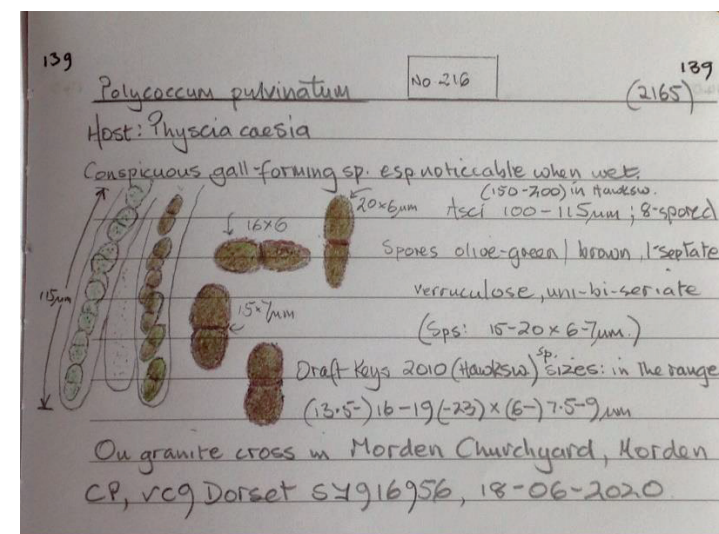 139
139
Polycoccum pulvinatum
No. 216
(2165)
Host: Physcia caesia
Conspicuous gall-forming sp. esp noticcable when wet.
(150-200) in Hawksw.
Asci 100-115µm ; 8-spored
20x6µm
16x6
Spores olive-green / brown, 1-septate
115µm
15x7µm
verruculose, uni-bi-seriate
(Sps: 15-20 x 6-7µm.)
Draft Keys 2010 (Hawksw.) sp. sizes: in the range
(13.5-) 16-19 (-23) x (6-) 7.5-9 µm
On granite cross in Morden Churchyard, Morden
CP, vc9 Dorset SY916956, 18-06-2020